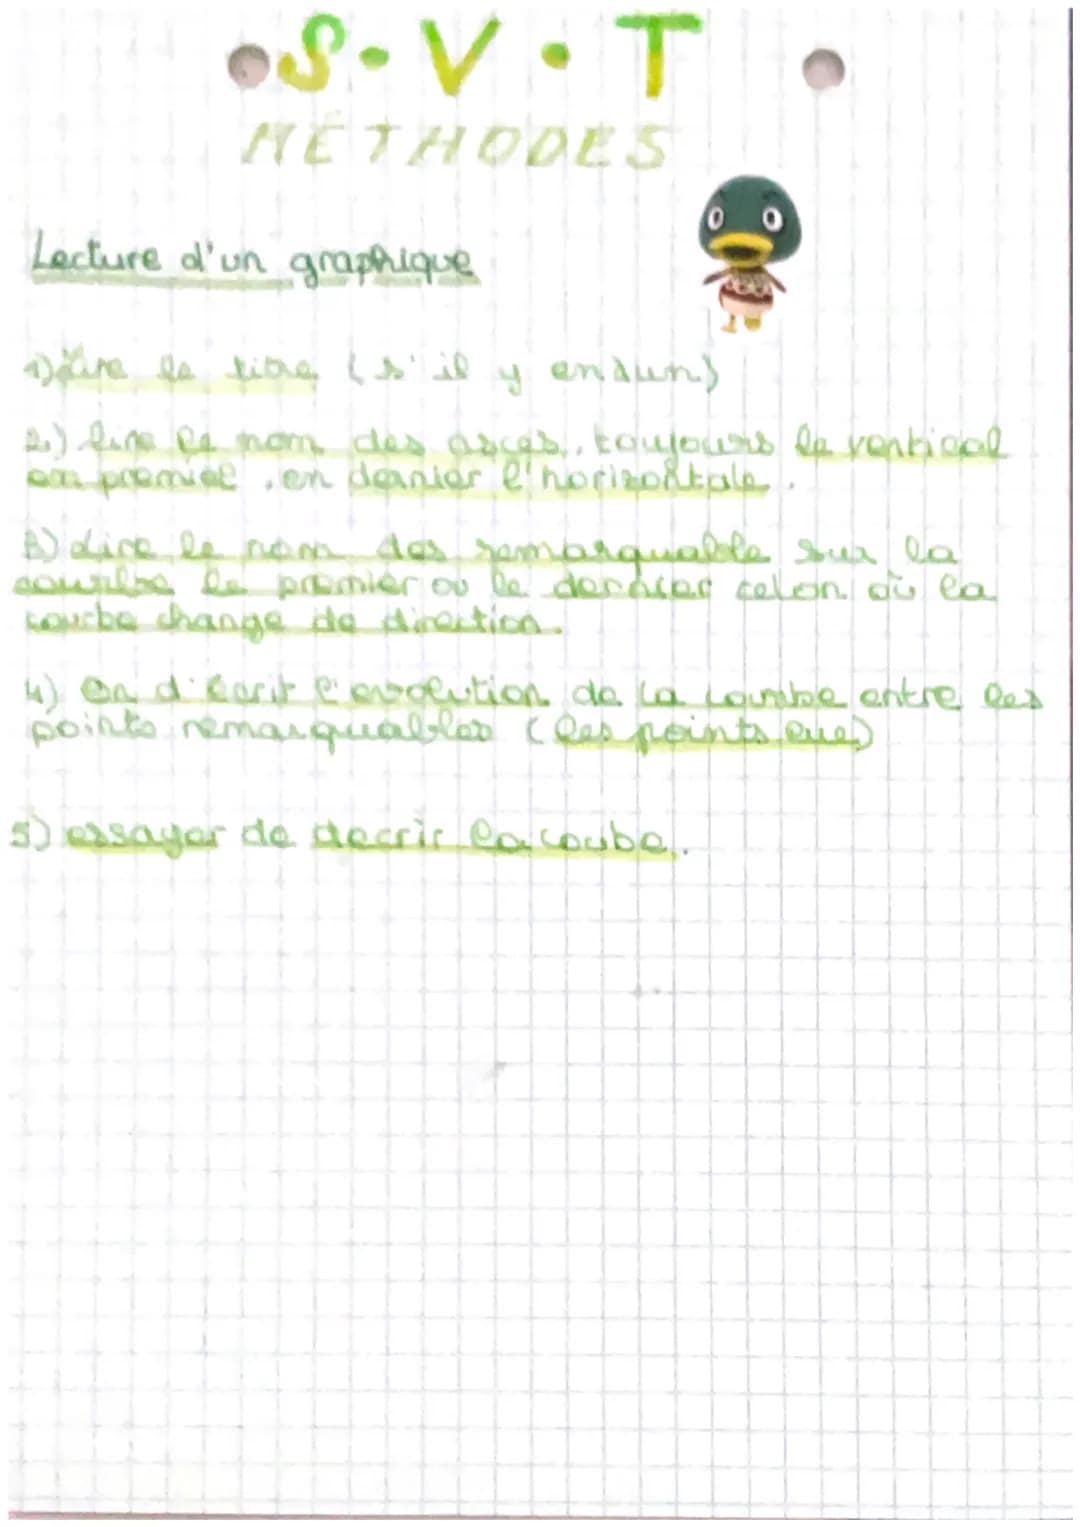 S.V.T
MÉTHODES
Lecture d'un graphique
1) Lire le titre (s'il y en à un)
2.) lire le nom des asces, toujours le vertical
en premiel, en dernier l'horizontale.
3) Lire le nom des remarquable sur la
courbe le premier ou le dernier celon où la
courbe change de direction.
4) On d'écrit l'evolution de la courbe entre les
points remarquables (les points
5) essayer de decrir la coube.